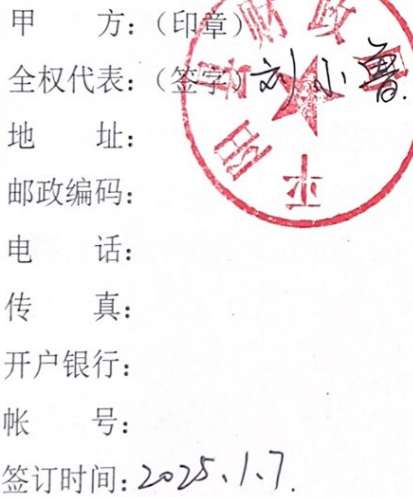 财政
甲 方:(印章)
全权代表:(签字)刘小鲁.
地 址:
邮政编码:
电 话:
传 真:
开户银行:
帐 号:
签订时间:2025.1.7.